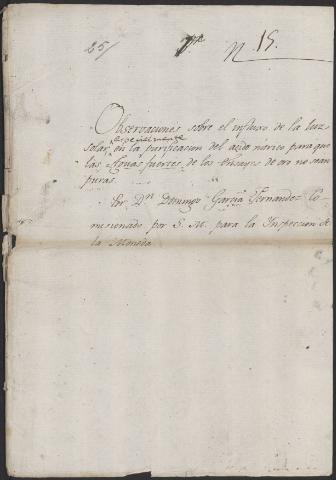 25/ N. 15.
Observaciones sobre el influxo de la luz
especialmente
solar, en la purificacion del acido marino para que
las Aguas fuertes de los Ensayes de oro no sean
puras.
Por Dn. Domingo Garcia Fernandez Co-
misionado por S. M. para la Inspeccion de
la Moneda